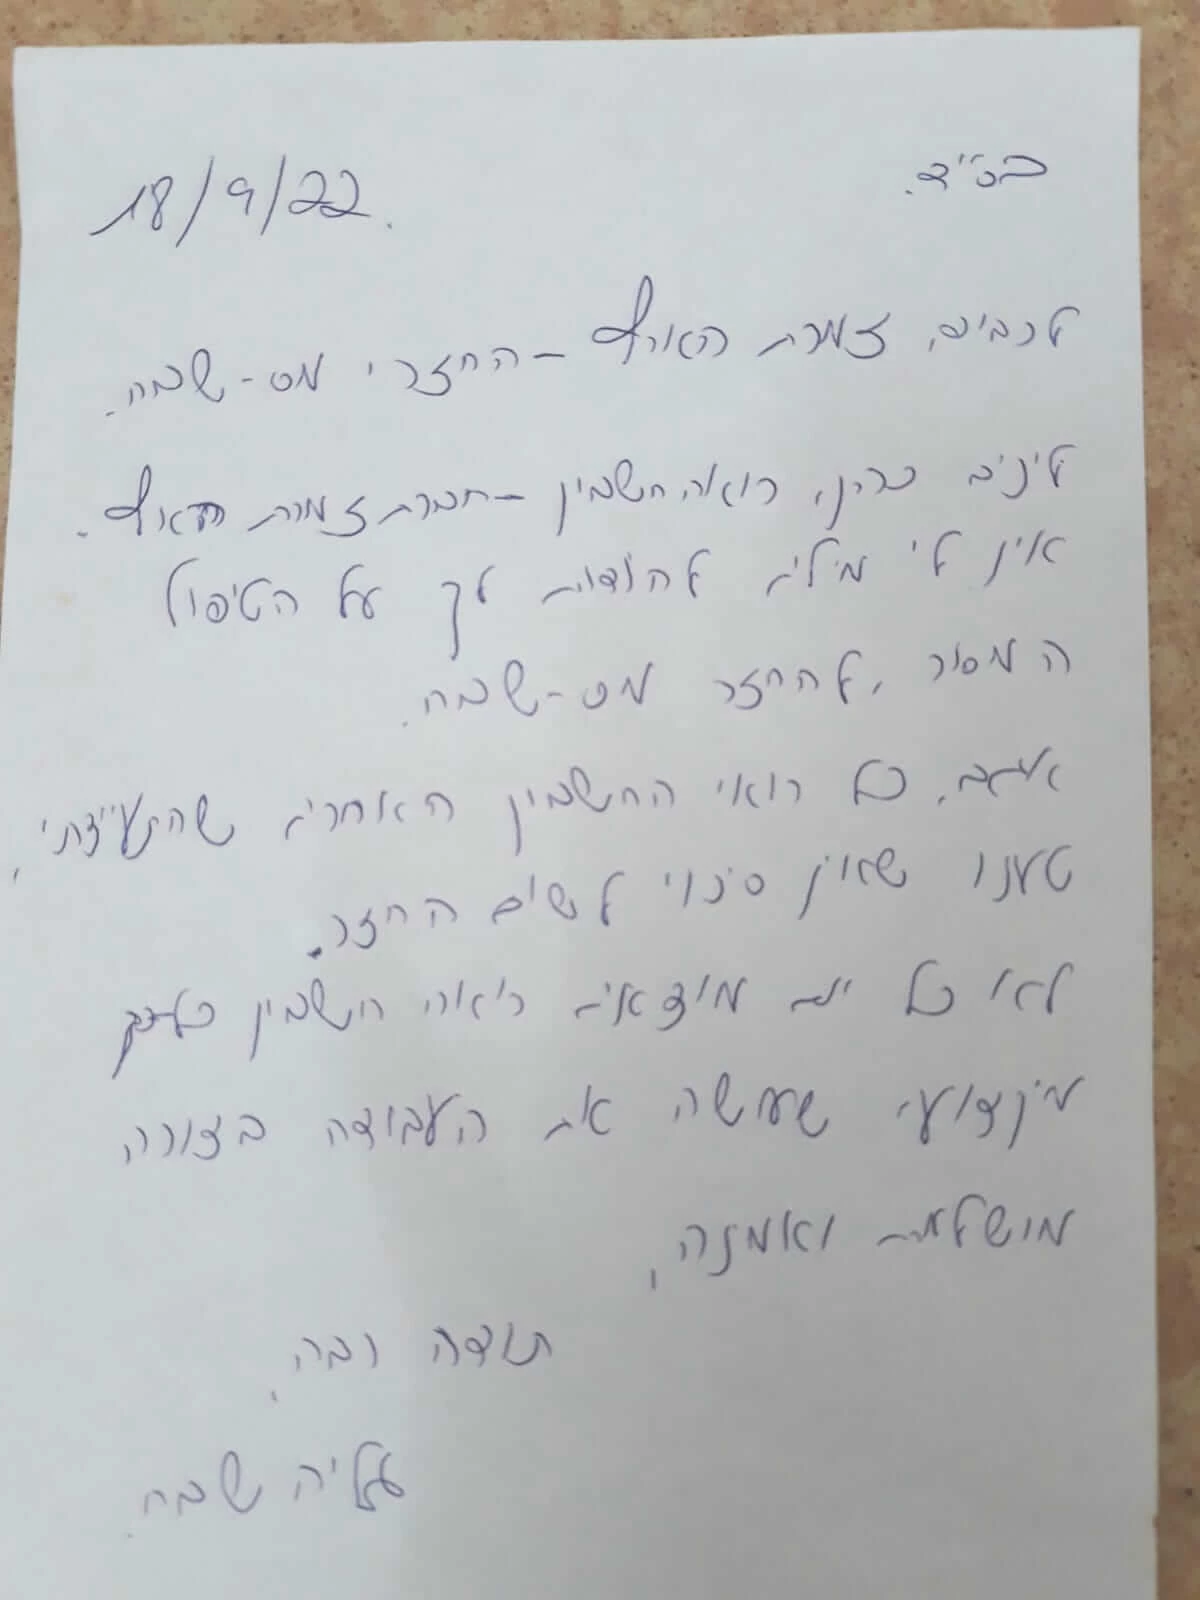 בס"ד.
18/9/22.
לכבוד, זמרת הארץ - החזרי מס-שבח.
ליניב כהן, רואה חשבון - חברת זמרת הארץ.
אין לי מילים להודות לך על הטיפול
המסור, להחזר מס-שבח.
אגב, כל רואי החשבון האחרים שהתיעצתי,
טענו שאין סיכוי לשום החזר.
לא כל יום מוצאים רואה חשבון
מיקצועי שעושה את העבודה בצורה
מושלמת ואמינה,
תודה רבה,
עליה שבח.